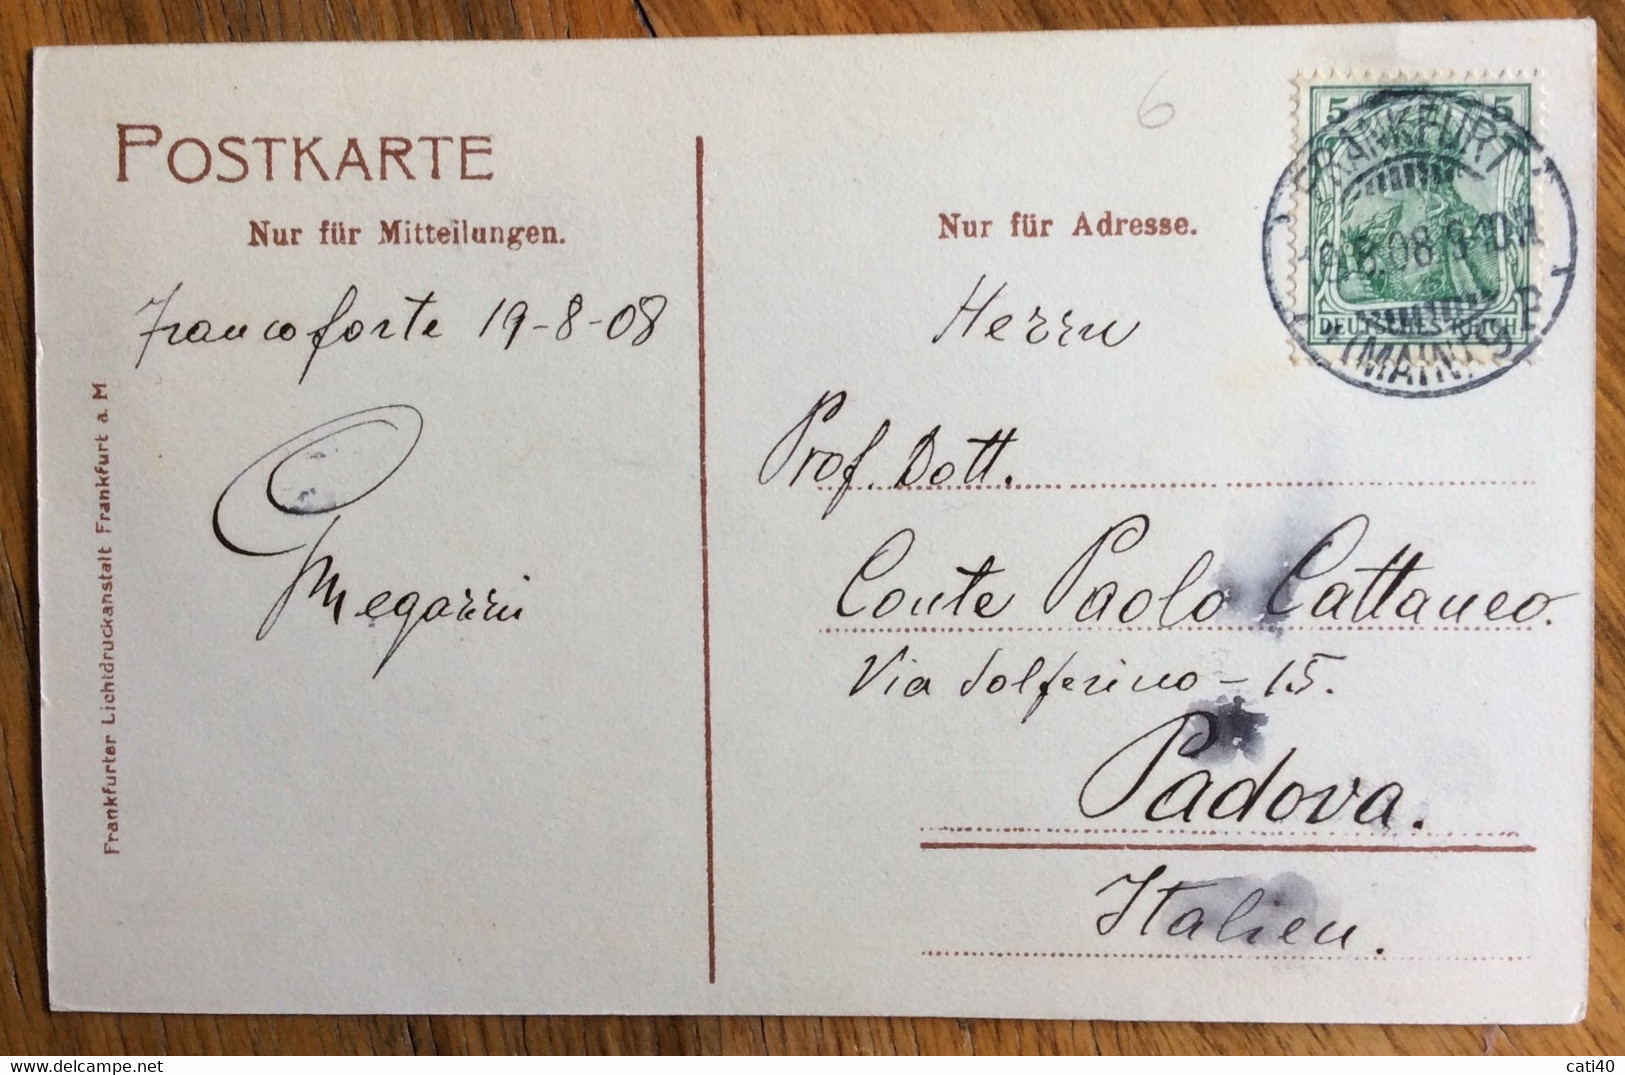 POSTKARTE
Nur für Mitteilungen.
Francoforte 19-8-08
Megozzi
Frankfurter Lichtdruckanstalt Frankfurt a. M
6
Nur für Adresse.
5 5
DEUTSCHES REICH
FRANKFURT
08.9-10
(MAIN) 9
Herrn
Prof. Dott.
Conte Paolo Cattaneo.
Via Solferino - 15.
Padova.
Italien.
cati40